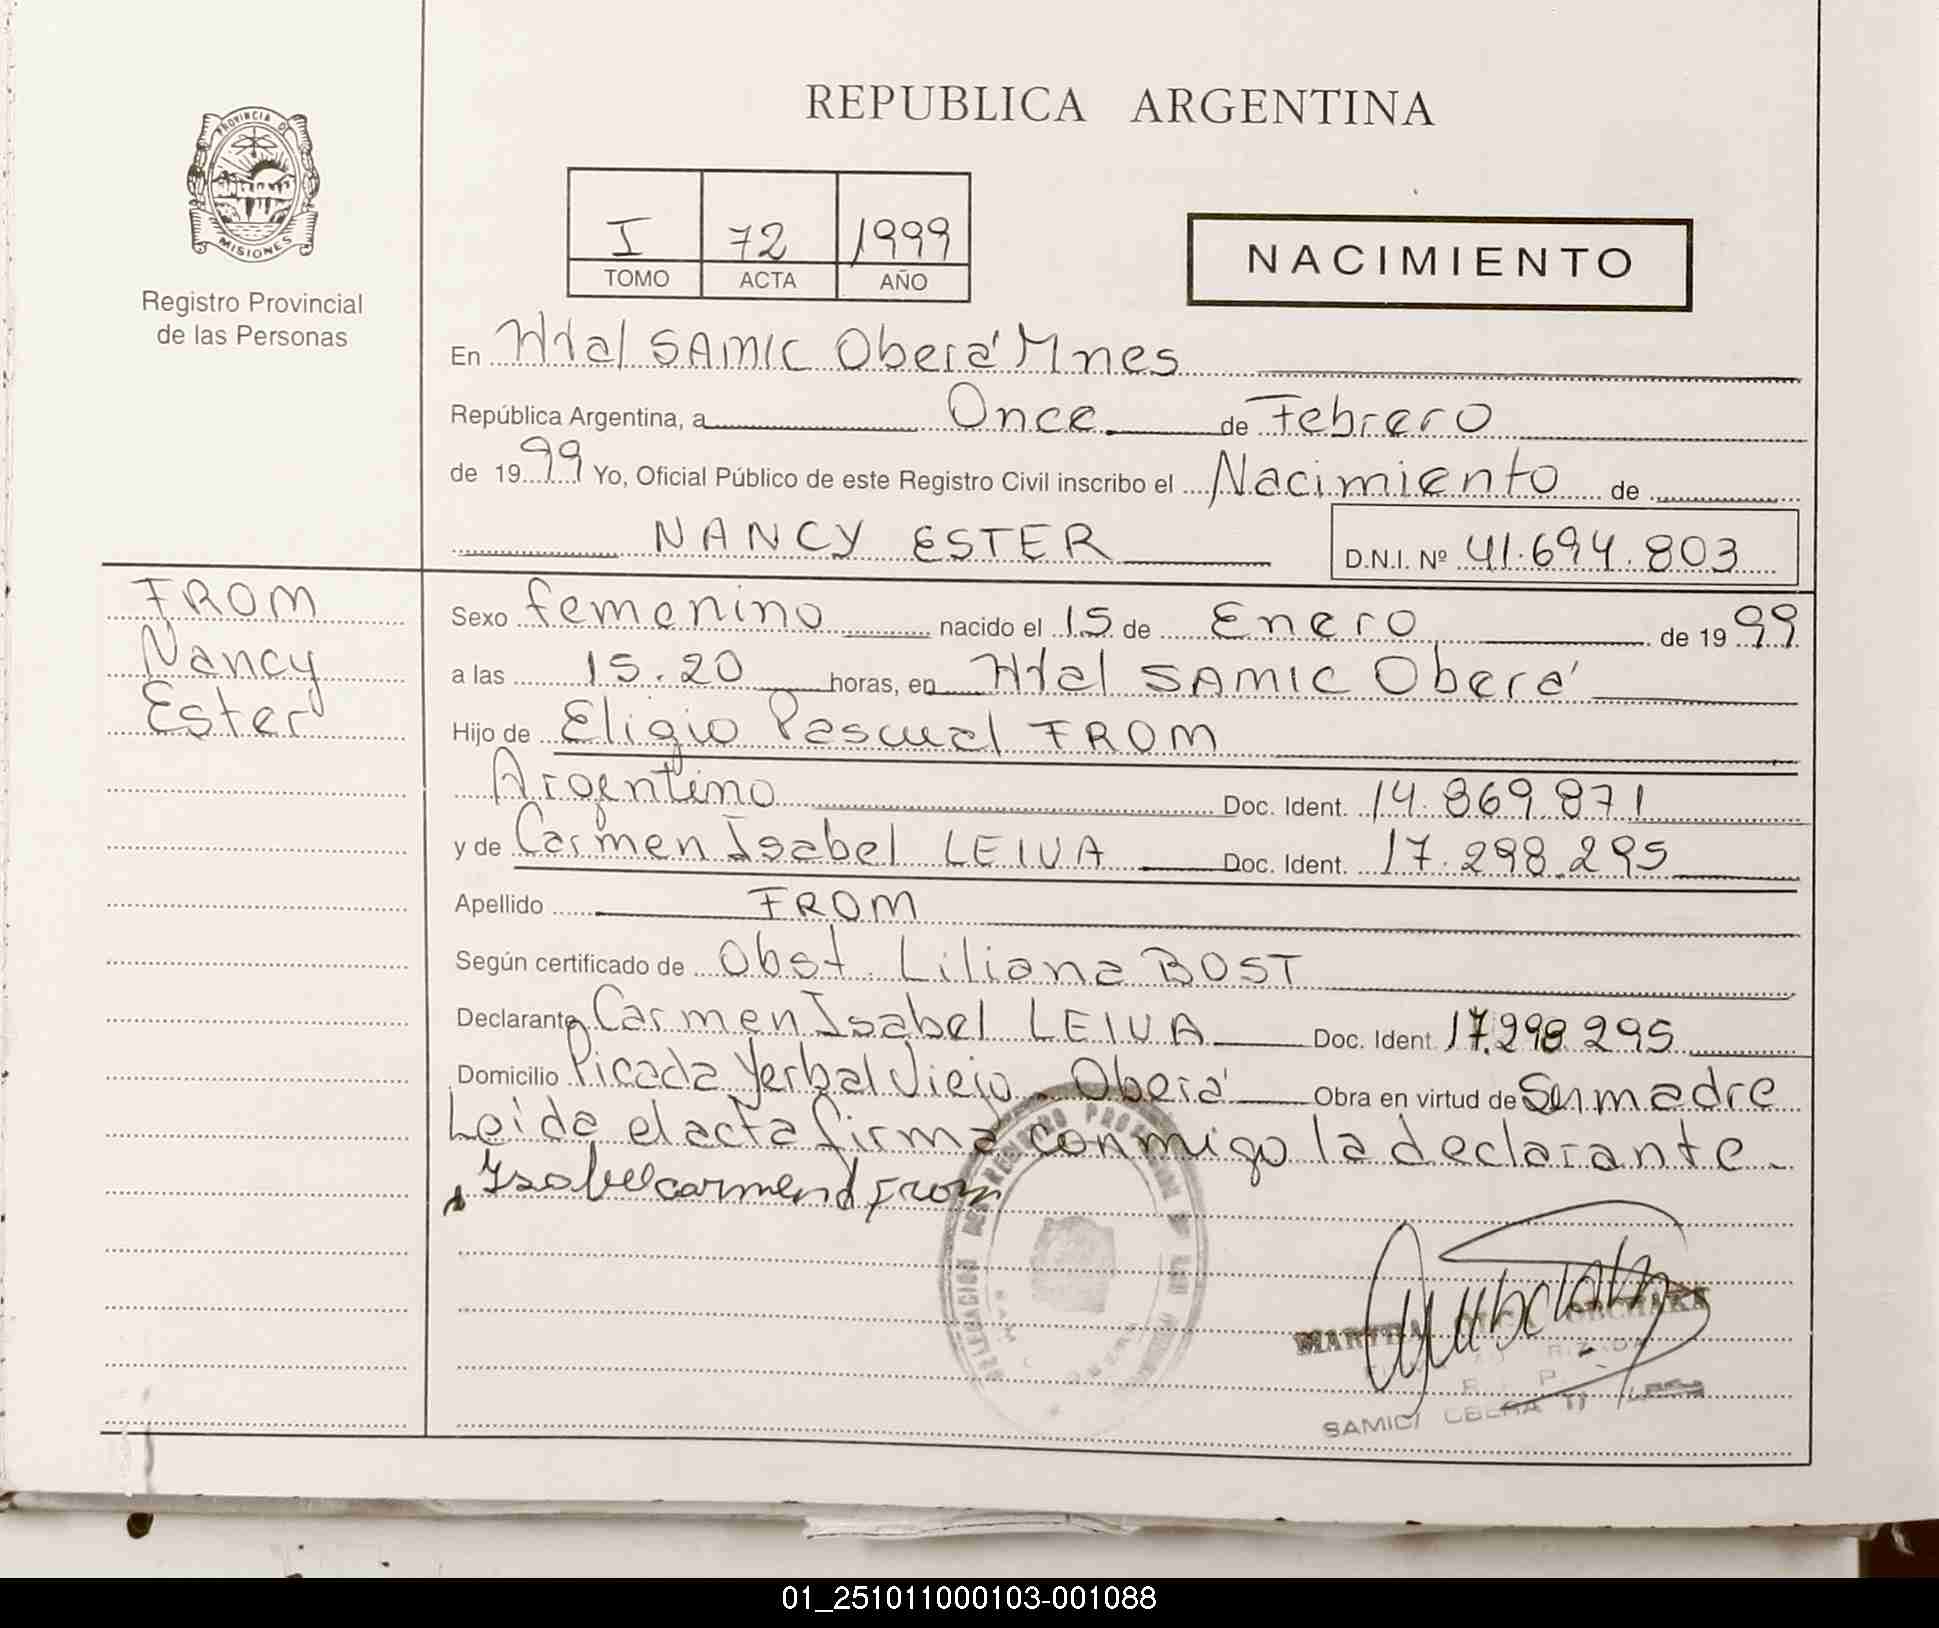 REPUBLICA ARGENTINA
PROVINCIA DE
MISIONES
Registro Provincial
de las Personas
I 72 1999
TOMO ACTA AÑO
NACIMIENTO
En Htal SAMIC Oberá Mnes
República Argentina, a Once de Febrero
de 1999 Yo, Oficial Público de este Registro Civil inscribo el Nacimiento de
NANCY ESTER D.N.I. Nº 41.694.803
FROM
Nancy
Ester
Sexo femenino nacido el 15 de Enero de 1999
a las 15.20 horas, en Htal SAMIC Oberá
Hijo de Eligio Pascual FROM
Argentino Doc. Ident. 14.869.871
y de Carmen Isabel LEIVA Doc. Ident. 17.298.295
Apellido FROM
Según certificado de Obst. Liliana BOST
Declarante Carmen Isabel LEIVA Doc. Ident. 17.298.295
Domicilio Picada Yerbal Viejo - Oberá Obra en virtud de Ser madre
Leida el acta firma conmigo la declarante.
Isabel carmend From
DELEGACION DEL REGISTRO PROVINCIAL DE LAS
MARTHA
SAMIC OBERA
01_251011000103-001088